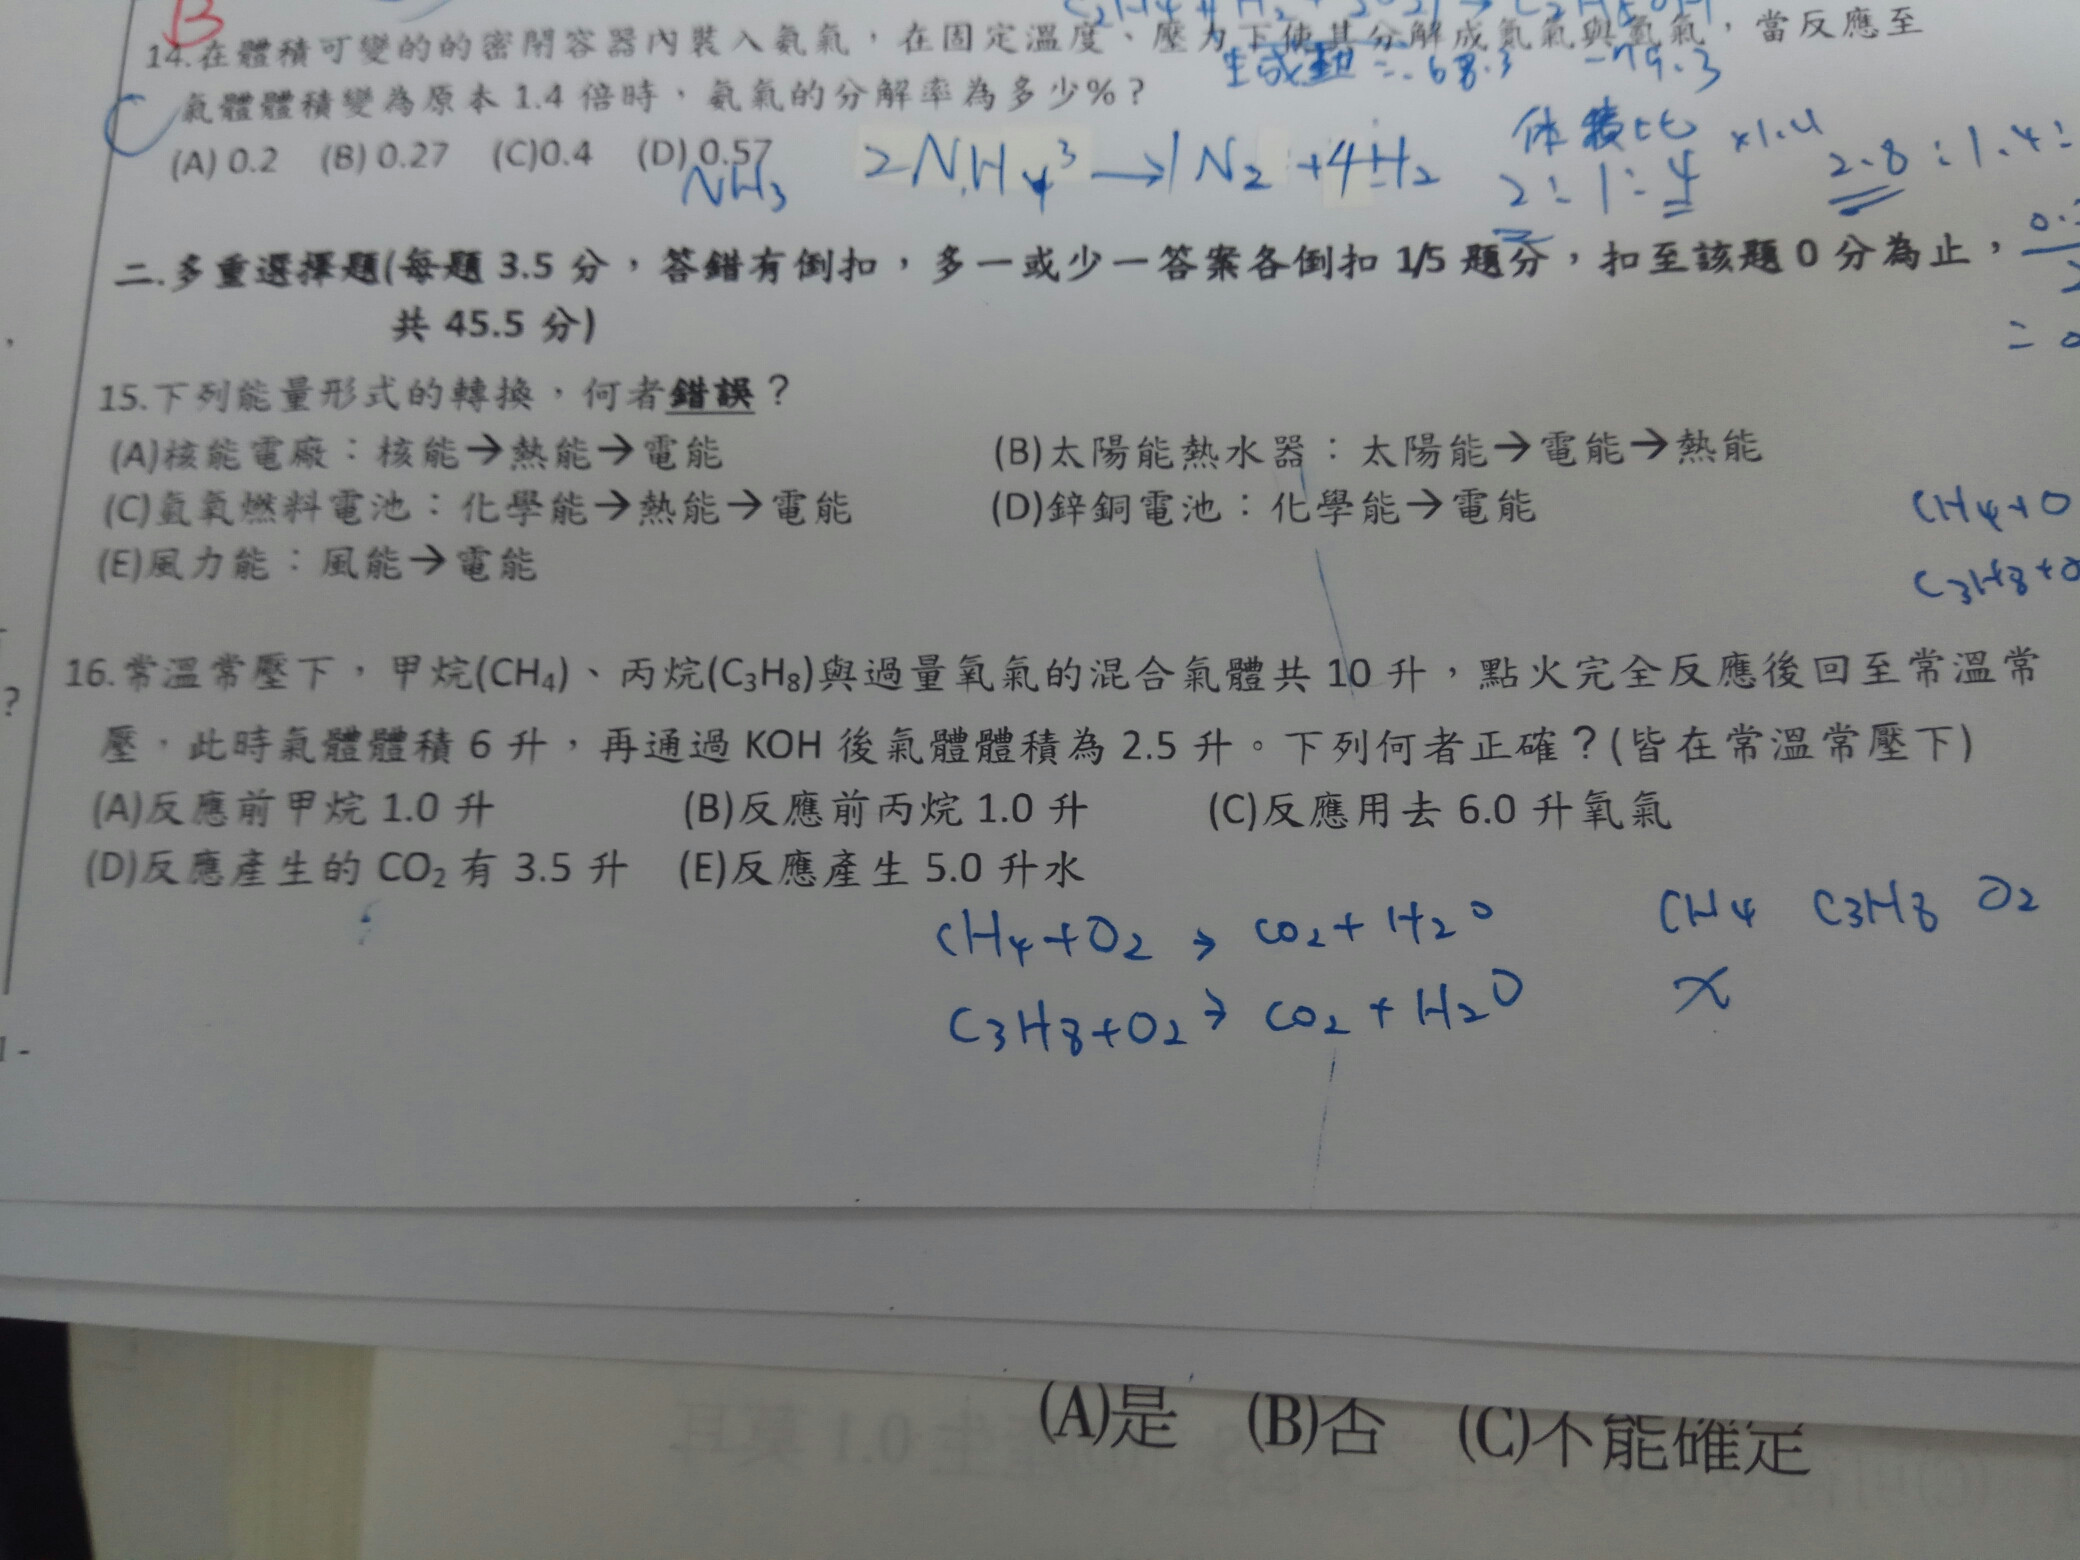 B
14.在體積可變的的密閉容器內裝入氨氣，在固定溫度、壓力下使其分解成氮氣與氫氣，當反應至
生成熱 = -68.3 -79.3
C 氣體體積變為原本 1.4 倍時，氨氣的分解率為多少%？
(A) 0.2 (B) 0.27 (C)0.4 (D) 0.57
NH3 2NH4 3 → 1N2 + 4H2 体積比 2:1:4 ×1.4 2.8:1.4:
二.多重選擇題(每題 3.5 分，答錯有倒扣，多一或少一答案各倒扣 1/5 題分，扣至該題 0 分為止，
共 45.5 分)
15.下列能量形式的轉換，何者錯誤？
(A)核能電廠：核能→熱能→電能 (B)太陽能熱水器：太陽能→電能→熱能
(C)氫氧燃料電池：化學能→熱能→電能 (D)鋅銅電池：化學能→電能
CH4+O
(E)風力能：風能→電能
C3H8+O
16.常溫常壓下，甲烷(CH4)、丙烷(C3H8)與過量氧氣的混合氣體共 10 升，點火完全反應後回至常溫常
壓，此時氣體體積 6 升，再通過 KOH 後氣體體積為 2.5 升。下列何者正確？(皆在常溫常壓下)
(A)反應前甲烷 1.0 升 (B)反應前丙烷 1.0 升 (C)反應用去 6.0 升氧氣
(D)反應產生的 CO2 有 3.5 升 (E)反應產生 5.0 升水
CH4+O2 → CO2+H2O CH4 C3H8 O2
C3H8+O2 → CO2+H2O x
(A)是 (B)否 (C)不能確定